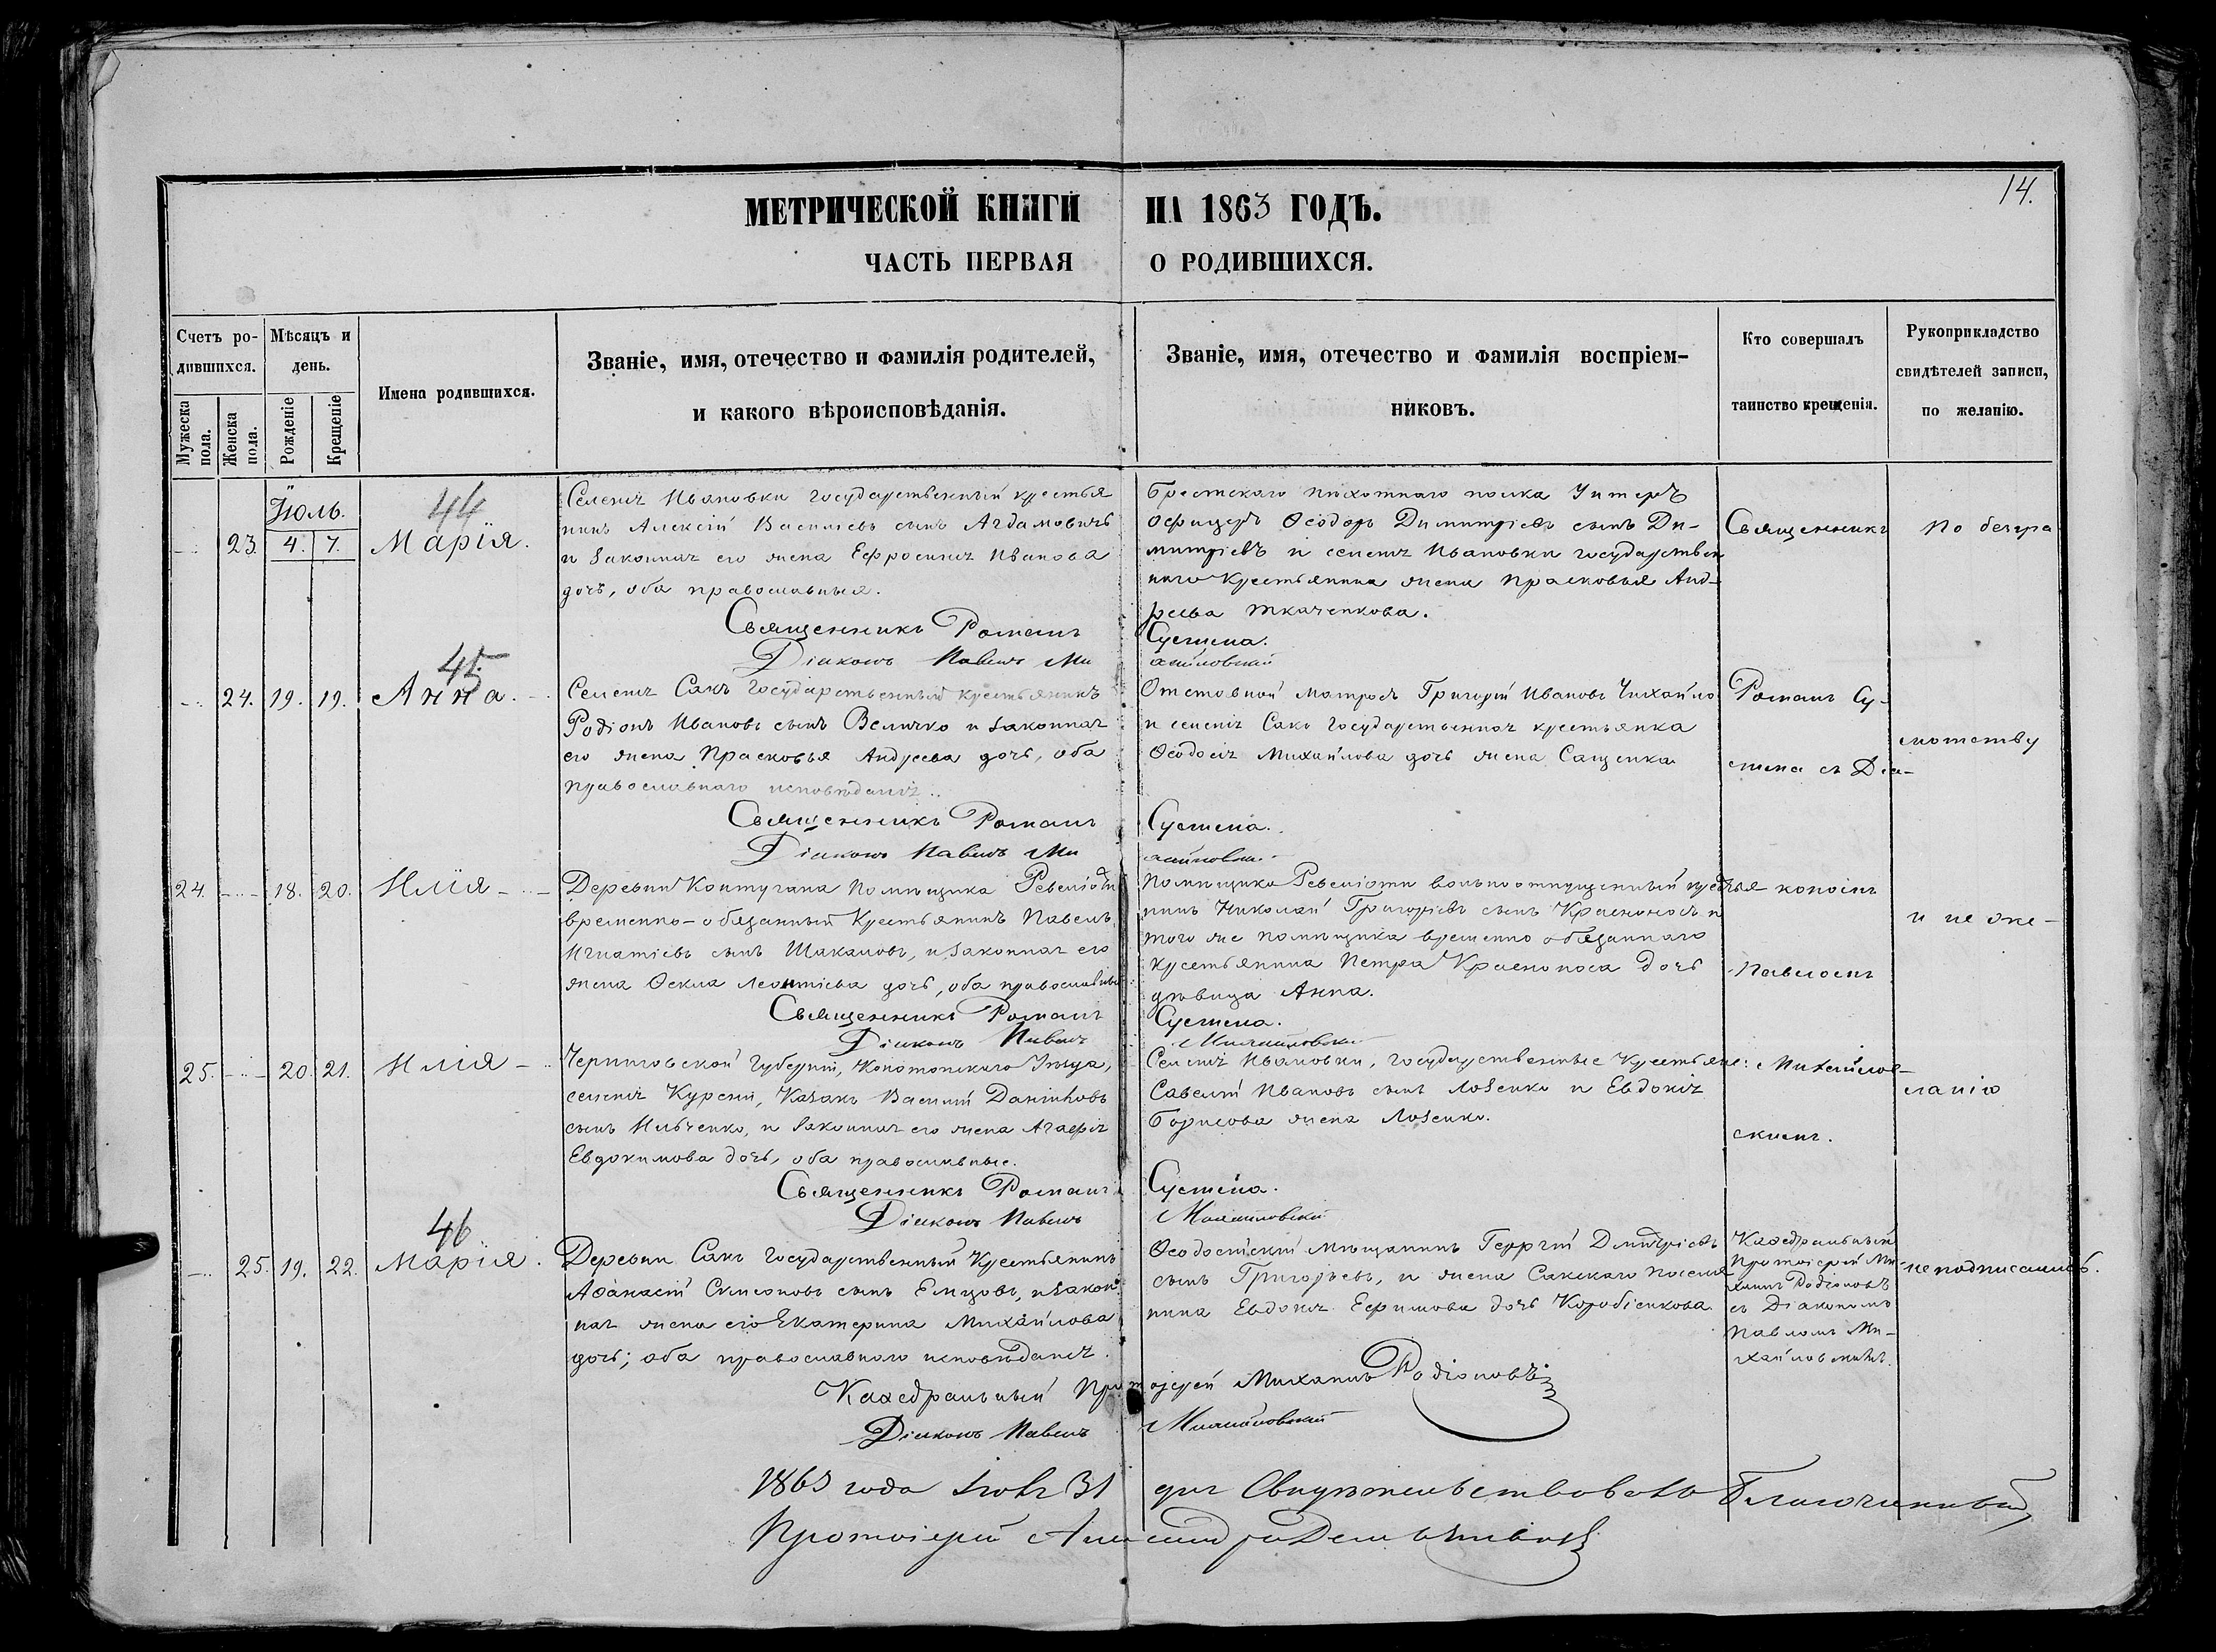 14.
МЕТРИЧЕСКОЙ КНИГИ НА 1863 ГОДЪ.
ЧАСТЬ ПЕРВАЯ О РОДИВШИХСЯ.
Счетъ ро-
дившихся.
Мужеска пола.
Женска пола.
Мѣсяцъ и
день.
Рожденіе
Крещеніе
Имена родившихся.
Званіе, имя, отечество и фамилія родителей,
и какого вѣроисповѣданія.
Званіе, имя, отечество и фамилія воспріем-
никовъ.
Кто совершалъ
таинство крещенія.
Рукоприкладство
свидѣтелей записи,
по желанію.
Іюль.
44
23. 4. 7. Марія.
Селенія Ивановки государственный крестья
нинъ Алексій Васильевъ сынъ Агдамовичъ
и законная его жена Ефросинія Иванова
дочь, оба православныя.
Брестскаго пѣхотнаго полка Унтеръ
Офицеръ Ѳеодоръ Димитріевъ сынъ Ди-
митріевъ и селенія Ивановки государствен
наго крестьянина жена Прасковья Анд-
реева Ткаченкова.
Священникъ Романъ Сустена.
Діаконъ Павелъ Михайловскій
Священникъ
По безгра
45
24. 19. 19. Анна.
Селенія Сакъ государственный крестьянинъ
Родіонъ Ивановъ сынъ Величко и законная
его жена Прасковья Андреева дочь, оба
православнаго исповѣданія.
Отставной матросъ Григорій Ивановъ Чихайло
и селенія Сакъ государственная крестьянка
Ѳеодосія Михайлова дочь жена Сащенка
Священникъ Романъ Сустена.
Діаконъ Павелъ Михайловскій
Романъ Су-
стена съ Діа-
мотству
24. 18. 20. Илія
Деревни Контугана помѣщика Ревеліоти
временно-обязанный крестьянинъ Павелъ
Игнатіевъ сынъ Шакаловъ, и законная его
жена Ѳекла Леонтіева дочь, оба православные
Помѣщика Ревеліоти вольноотпущенный крестья
нинъ Николай Григоріевъ сынъ Красноносъ и
того же помѣщика временно обязаннаго
крестьянина Петра Красноноса дочь
дѣвица Анна.
Священникъ Романъ Сустена.
Діаконъ Павелъ Михайловскій
кономъ
Павломъ
и не же-
25. 20. 21. Илія
Черниговской Губерніи, Конотопскаго Уѣзда,
селенія Курени, Казакъ Василій Даніиловъ
сынъ Ильченко, и законная его жена Агафія
Евдокимова дочь, оба православные.
Селенія Ивановки, государственные крестьяне:
Савелій Ивановъ сынъ Лозенко и Евдокія
Борисова жена Лозенко.
Священникъ Романъ Сустена.
Діаконъ Павелъ Михайловскій
Михайлов-
скимъ.
ланію
46
25. 19. 22. Марія.
Деревни Сакъ государственный крестьянинъ
Аѳанасій Симеоновъ сынъ Емцовъ, и закон
ная жена его Екатерина Михайлова
дочь; оба православнаго исповѣданія.
Ѳеодосійскій мѣщанинъ Георгій Дмитріевъ
сынъ Григорьевъ, и жена Сакскаго поселя
нина Евдокія Ефимова дочь Коробіенкова
Каѳедральный Протоіерей Михаилъ Родіоновъ
Діаконъ Павелъ Михайловскій
Каѳедральный
Протоіерей Ми-
хаилъ Родіоновъ
съ Діакономъ
Павломъ Ми-
хайловскимъ.
неподписались.
1863 года Іюля 31 дня Свидѣтельствовалъ Благочинный
Протоіерей